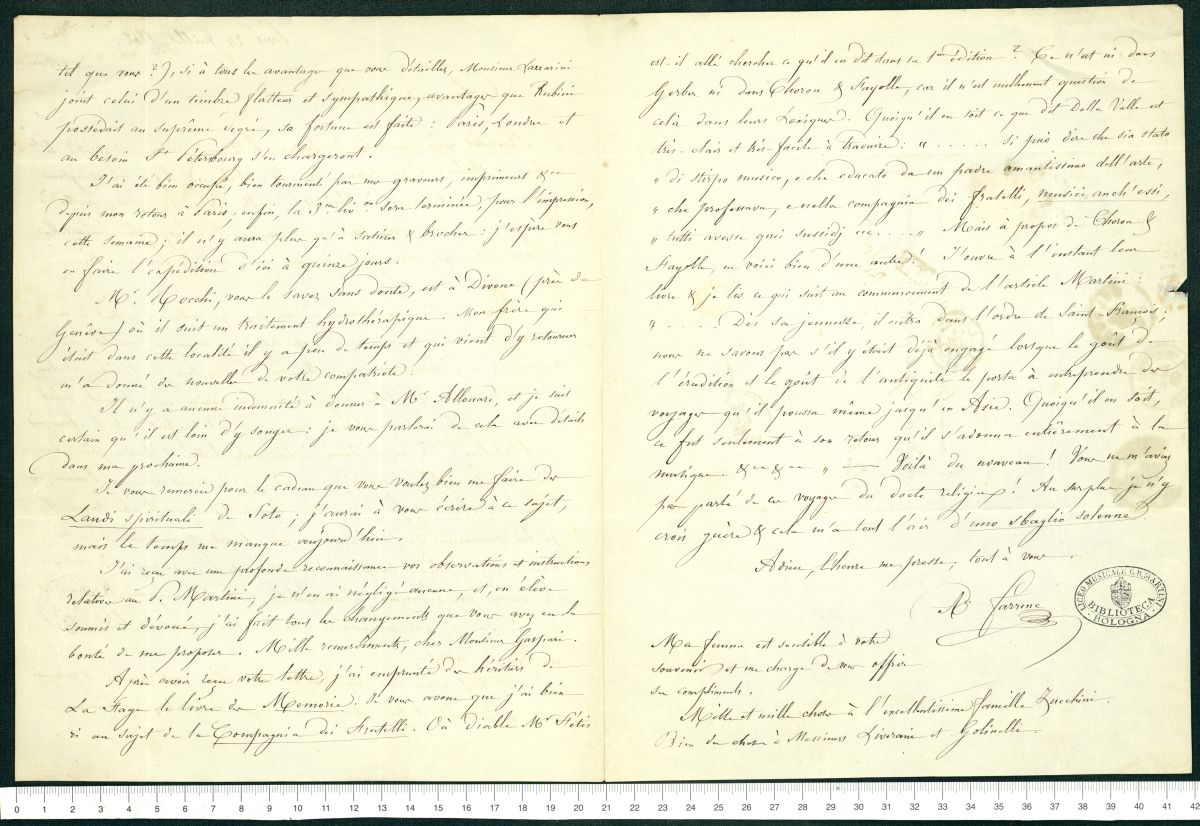 tel que vous ?), si à tous les avantages que vous détaillez, Monsieur Lazzarini
joint celui d'un timbre flatteur et sympathique, avantages que Rubini
possédait au suprême degré, sa fortune est faite : Paris, Londres et
au besoin St Pétersbourg s'en chargeront.
J'ai été bien occupé, bien tourmenté par mes graveurs, imprimeurs &ca
depuis mon retour à Paris; enfin, la 3me livon sera terminée, pour l'impression,
cette semaine; il n'y aura plus qu'à satiner & brocher : j'espère vous
en faire l'expédition d'ici à quinze jours.
Mr. Rocchi, vous le savez sans doute, est à Divonne (près de
Genève) où il suit un traitement hydrothérapique. Mon frère qui
était dans cette localité il y a peu de temps et qui vient d'y retourner
m'a donné des nouvelles de votre compatriote.
Il n'y a aucune indemnité à donner à Mr. Allouard, et je suis
certain qu'il est loin d'y songer : je vous parlerai de cela avec détails
dans ma prochaine.
Je vous remercie pour le cadeau que vous voulez bien me faire des
Laudi spirituali de Soto; j'aurai à vous écrire à ce sujet,
mais le temps me manque aujourd'hui.
J'ai reçu avec une profonde reconnaissance vos observations et instructions
relatives au P. Martini; je n'en ai négligé aucune, et, en élève
soumis et dévoué, j'ai fait tous les changements que vous avez eu la
bonté de me proposer. Mille remerciments, cher Monsieur Gaspari.
Après avoir reçu votre lettre, j'ai emprunté des héritiers de
La Fage le livre des Memorie. Je vous avoue que j'ai bien
ri au sujet de la Compagnia dei Fratelli. Où diable Mr Fétis
est-il allé chercher ce qu'il en dit dans sa 1ere édition ? Ce n'est ni dans
Gerber ni dans Choron & Fayolle, car il n'est nullement question de
celà dans leurs Lexiques. Quoiqu'il en soit ce que dit Della Valle est
très-clair et très facile à traduire: " ..... si può dire che sia stato
" di stirpe musico, e che educato da un padre amantissimo dell'arte,
" che professava, e nella compagnia dei fratelli, musici anch'essi,
" tutti avesse quei sussidj ecc. .... " Mais à propos de Choron &
Fayolle, en voici bien d'une autre! J'ouvre à l'instant leur
livre & je lis ce qui suit au commencement de l'article Martini :
" ..... Dès sa jeunesse, il entra dans l'ordre de Saint-François;
nous ne savons pas s'il y était déjà engagé lorsque le goût de
l'érudition et le goût de l'antiquité le porta à entreprendre des
voyages qu'il poussa même jusqu'en Asie. Quoiqu'il en soit,
ce fut seulement à son retour qu'il s'adonna entièrement à la
musique &ca &ca " — Voilà du nouveau! Vous ne m'aviez
pas parlé de ces voyages du docte religieux! Au surplus je n'y
crois guère & cela m'a tout l'air d'uno sbaglio solenne.
Adieu, l'heure me presse; tout à vous.
Rc Farrenc
LICEO MUSICALE G.B. MARTINI
BIBLIOTECA
BOLOGNA
Ma femme est sensible à votre
souvenir et me charge de vous offrir
ses compliments.
Mille et mille choses à l'excellentissime famille Zucchini.
Bien des choses à Messieurs Liverani et Golinelli.
0 1 2 3 4 5 6 7 8 9 10 11 12 13 14 15 16 17 18 19 20 21 22 23 24 25 26 27 28 29 30 31 32 33 34 35 36 37 38 39 40 41 42